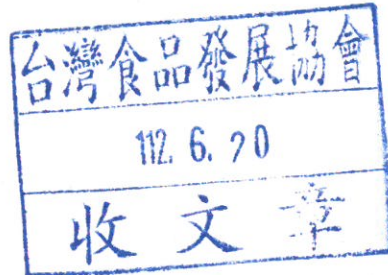 台灣食品發展協會
112. 6. 20
收文章